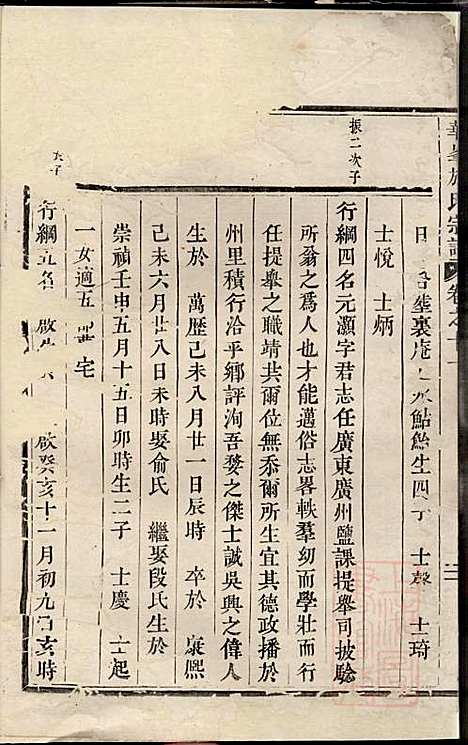 華㟧施氏宗譜 卷之十
裏庵 鮎鮯生四子 士琦
士悅 士炳
振二次子
行綱四名元灝字君志任廣東廣州鹽課提舉司披騐
所翁之為人也才能邁俗志畧軼羣幼而學壯而行
任提舉之職靖共爾位無忝爾所生宜其德政播於
州里積行洽乎鄉評洵吾婺之傑士誠吳興之偉人
生於 萬歷己未八月廿一日辰時 卒於 康熙
己未六月廿八日未時娶俞氏 繼娶段氏生於
崇禎壬申五月十五日卯時生二子 士慶 士起
一女適五 宅
行綱五名 啟癸亥十一月初九 亥時